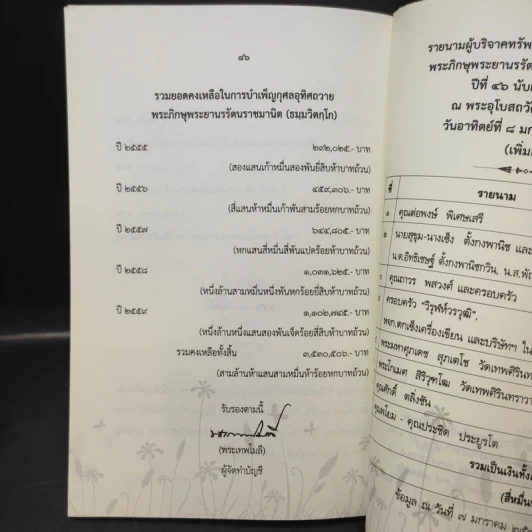 ๘๖
รวมยอดคงเหลือในการบำเพ็ญกุศลอุทิศถวาย
พระภิกษุพระยานรรัตนราชมานิต (ธมฺมวิตกฺโก)
ปี ๒๕๕๕ ๒๙๒,๐๒๕.- บาท
(สองแสนเก้าหมื่นสองพันยี่สิบห้าบาทถ้วน)
ปี ๒๕๕๖ ๔๕๙,๓๐๖.- บาท
(สี่แสนห้าหมื่นเก้าพันสามร้อยหกบาทถ้วน)
ปี ๒๕๕๗ ๖๔๔,๘๐๕.- บาท
(หกแสนสี่หมื่นสี่พันแปดร้อยห้าบาทถ้วน)
ปี ๒๕๕๘ ๑,๐๓๑,๖๒๕.- บาท
(หนึ่งล้านสามหมื่นหนึ่งพันหกร้อยยี่สิบห้าบาทถ้วน)
ปี ๒๕๕๙ ๑,๑๐๒,๗๔๕.- บาท
(หนึ่งล้านหนึ่งแสนสองพันเจ็ดร้อยสี่สิบห้าบาทถ้วน)
รวมคงเหลือทั้งสิ้น ๓,๕๓๐,๕๐๖.- บาท
(สามล้านห้าแสนสามหมื่นห้าร้อยหกบาทถ้วน)
รับรองตามนี้
(พระเทพโมลี)
ผู้จัดทำบัญชี
รายนามผู้บริจาคทรัพ
พระภิกษุพระยานรรัต
ปีที่ ๔๖ นับ
ณ พระอุโบสถวั
วันอาทิตย์ที่ ๘ มก
(เพิ่ม
ที่ รายนาม
๑ คุณต่อพงษ์ พิเศษเสรี
นายสุขุม-นางเซ็ง ตั้งกงพานิช และ
น.ต.อิทธิเชษฐ์ ตั้งกงพานิชกวิน, น.ส.พัณ
คุณถาวร พสวงศ์ และครอบครัว
ครอบครัว "วิรุฬห์วรวุฒิ",
หจก.ตกเซ็งเครื่องเขียน และบริษัทฯ ใน
พระมหาศุภเดช สุภเตโช วัดเทพศิรินท
พระโกเมศ สิริวุฑโฒ วัดเทพศิรินทราวา
คุณศักดิ์ ตลิ่งชัน
คุณพโยม - คุณประชิต ประยูรโต
รวมเป็นเงินทั้ง
(สี่หมื่น
ข้อมูล ณ วันที่ ๗ มกราคม ๒๕